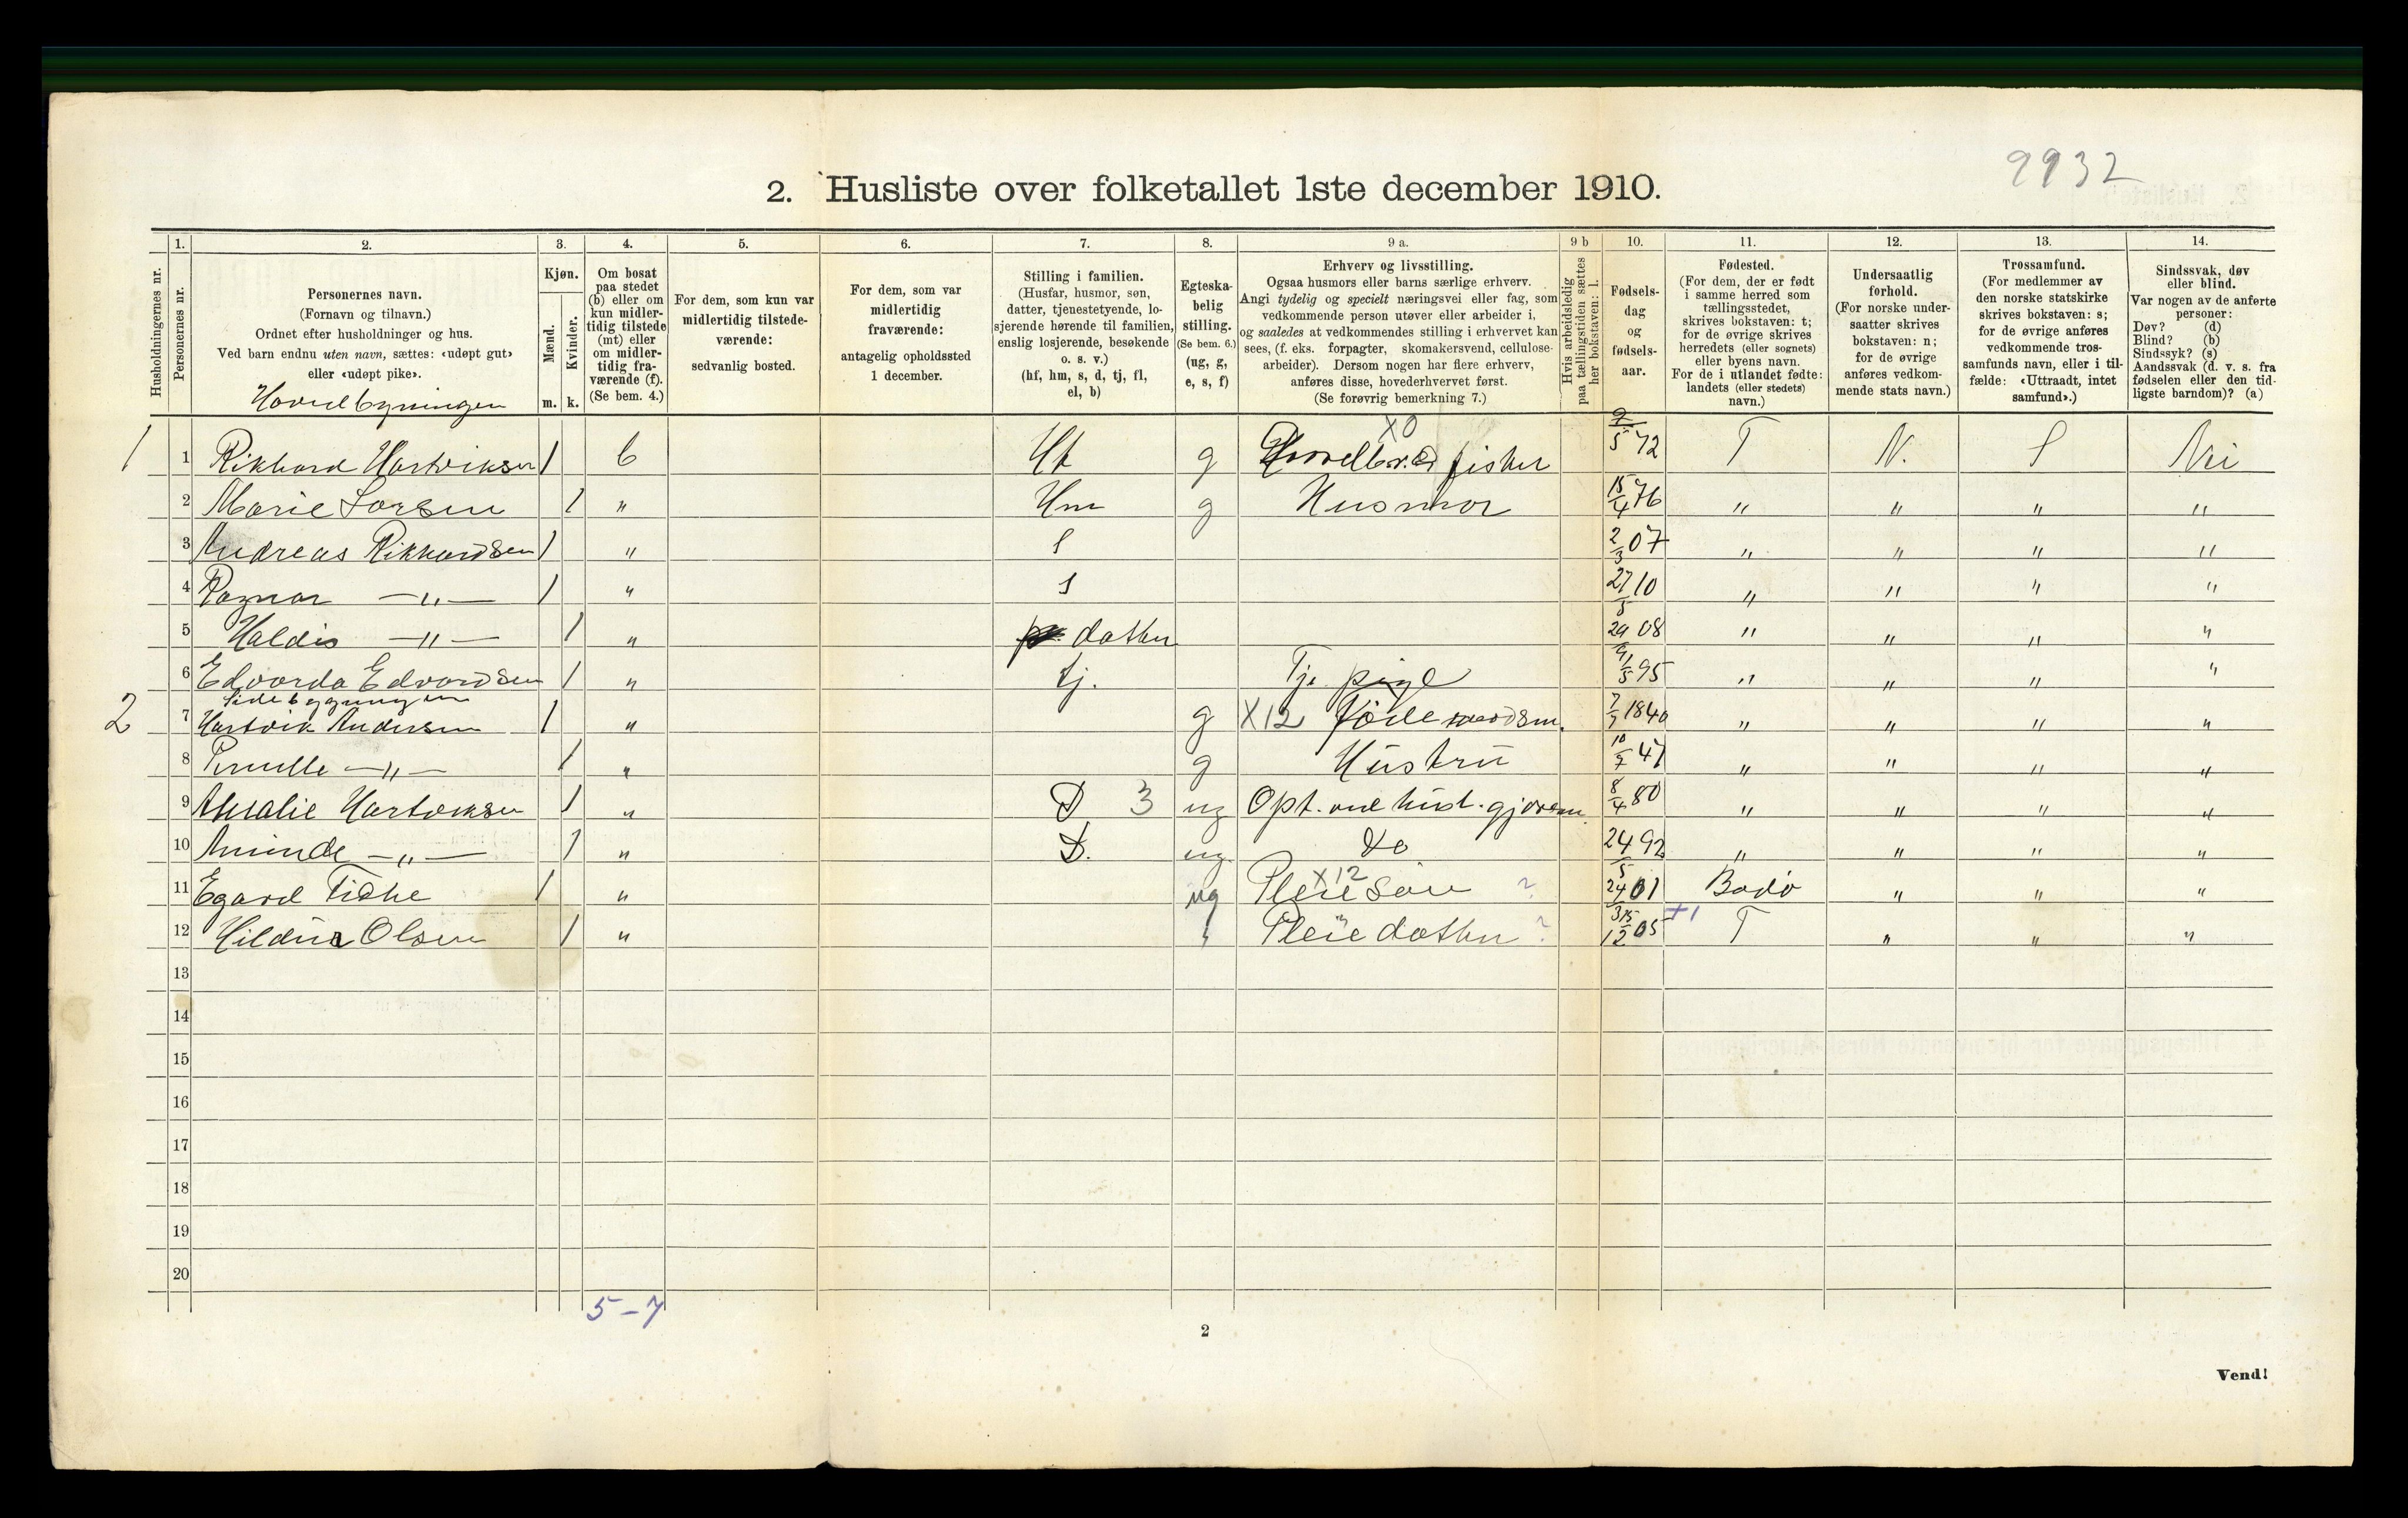 9932
2. Husliste over folketallet 1ste december 1910.
Husholdningernes nr.
1.
Personernes nr.
2.
Personernes navn.
(Fornavn og tilnavn.)
Ordnet efter husholdninger og hus.
Ved barn endnu uten navn, sættes: «udøpt gut»
eller «udøpt pike».
Hovedbyningen
3.
Kjøn.
Mænd.
Kvinder.
m. k.
4.
Om bosat
paa stedet
(b) eller om
kun midler-
tidig tilstede
(mt) eller
om midler-
tidig fra-
værende (f).
(Se bem. 4.)
5.
For dem, som kun var
midlertidig tilstede-
værende:
sedvanlig bosted.
6.
For dem, som var
midlertidig
fraværende:
antagelig opholdssted
1 december.
7.
Stilling i familien.
(Husfar, husmor, søn,
datter, tjenestetyende, lo-
sjerende hørende til familien,
enslig losjerende, besøkende
o. s. v.)
(hf, hm, s, d, tj, fl,
el, b)
8.
Egteska-
belig
stilling.
(Se bem. 6.)
(ug, g,
e, s, f)
9 a.
Erhverv og livsstilling.
Ogsaa husmors eller barns særlige erhverv.
Angi tydelig og specielt næringsvei eller fag, som
vedkommende person utøver eller arbeider i,
og saaledes at vedkommendes stilling i erhvervet kan
sees, (f. eks. forpagter, skomakersvend, cellulose-
arbeider). Dersom nogen har flere erhverv,
anføres disse, hovederhvervet først.
(Se forøvrig bemerkning 7.)
9 b
Hvis arbeidsledig
paa tællingstiden sættes
her bokstaven: l.
10.
Fødsels-
dag
og
fødsels-
aar.
11.
Fødested.
(For dem, der er født
i samme herred som
tællingsstedet,
skrives bokstaven: t;
for de øvrige skrives
herredets (eller sognets)
eller byens navn.
For de i utlandet fødte:
landets (eller stedets)
navn.)
12.
Undersaatlig
forhold.
(For norske under-
saatter skrives
bokstaven: n;
for de øvrige
anføres vedkom-
mende stats navn.)
13.
Trossamfund.
(For medlemmer av
den norske statskirke
skrives bokstaven: s;
for de øvrige anføres
vedkommende tros-
samfunds navn, eller i til-
fælde: «Uttraadt, intet
samfund».)
14.
Sindssvak, døv
eller blind.
Var nogen av de anførte
personer:
Døv? (d)
Blind? (b)
Sindssyk? (s)
Aandssvak (d. v. s. fra
fødselen eller den tid-
ligste barndom)? (a)
1 1 Rikhard Hartviksen 1 b Hf g X0 fisker 9/5 72 T N. S Nei
2 Marie Larsen 1 " Hm g Husmor 15/4 76 " " " "
3 Andreas Rikhardsen 1 " S 2/3 07 " " " "
4 Ragnar —"— 1 " S 27/5 10 " " " "
5 Haldis —"— 1 " datter 29/9 08 " " " "
6 Edvarda Edvardsen 1 " tj. Tje pige 1/5 95 " " " "
Sidebygningen
2 7 Hartvik Andersen 1 " g X12 Føderaadsm. 7/7 1840 " " " "
8 Pernille —"— 1 " g Hustru 10/7 47 " " " "
9 Amalie Hartviksen 1 " D 3 ug Opt. ved hust. gjøren 8/4 80 " " " "
10 Aminde —"— 1 " D. ug Do 24/5 92 " " " "
11 Egard Fiske 1 " ug X12 Pleie søn ? 24/3 01 Bodø " " "
12 Hildur Olsen 1 " " Pleie datter ? 15/12 05 +1 T " " "
13
14
15
16
17
18
19
20
5-7
2
Vend!